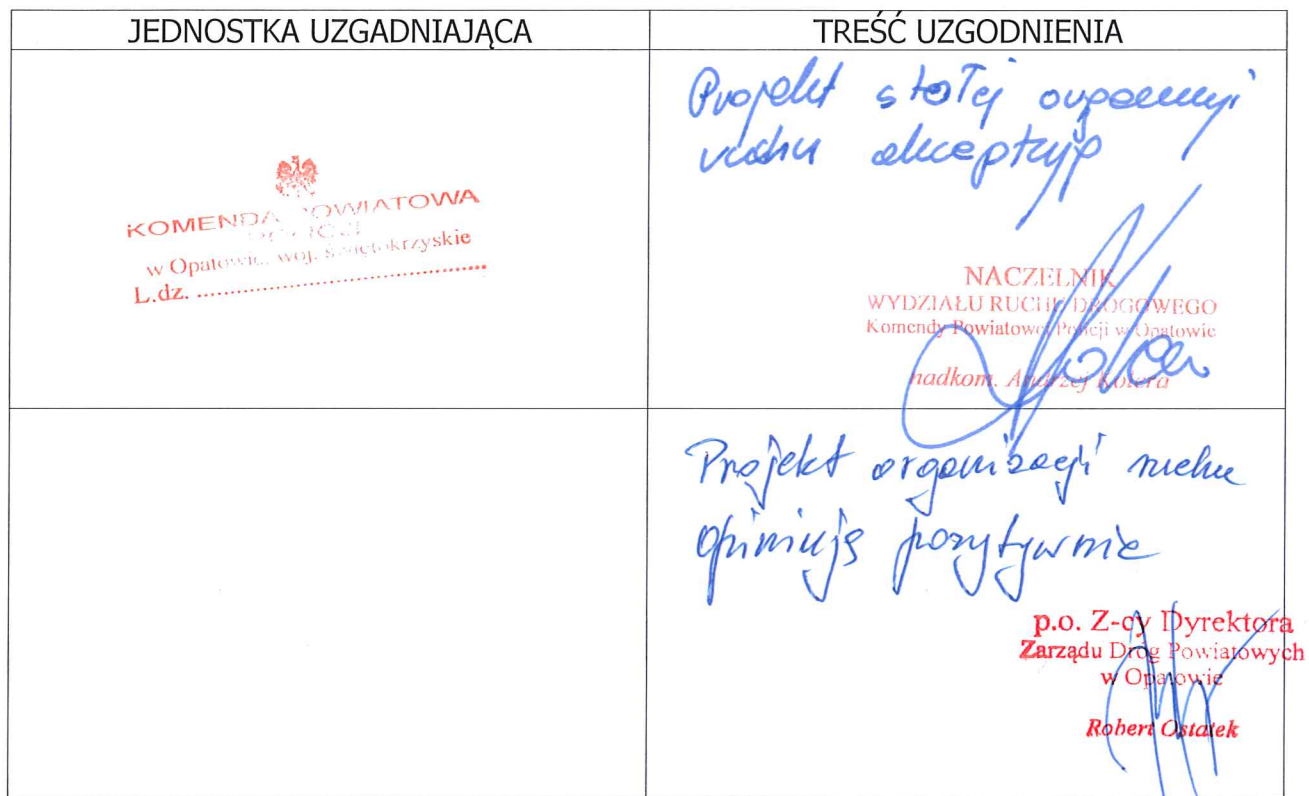 JEDNOSTKA UZGADNIAJĄCA
TREŚĆ UZGODNIENIA
KOMENDA POWIATOWA
POLICJI
w Opatowie, woj. świętokrzyskie
L.dz. ................................................
Projekt stałej organizacji
ruchu akceptuję
NACZELNIK
WYDZIAŁU RUCHU DROGOWEGO
Komendy Powiatowej Policji w Opatowie
nadkom. Andrzej Kotera
Projekt organizacji ruchu
opiniuję pozytywnie
p.o. Z-cy Dyrektora
Zarządu Dróg Powiatowych
w Opatowie
Robert Ostatek